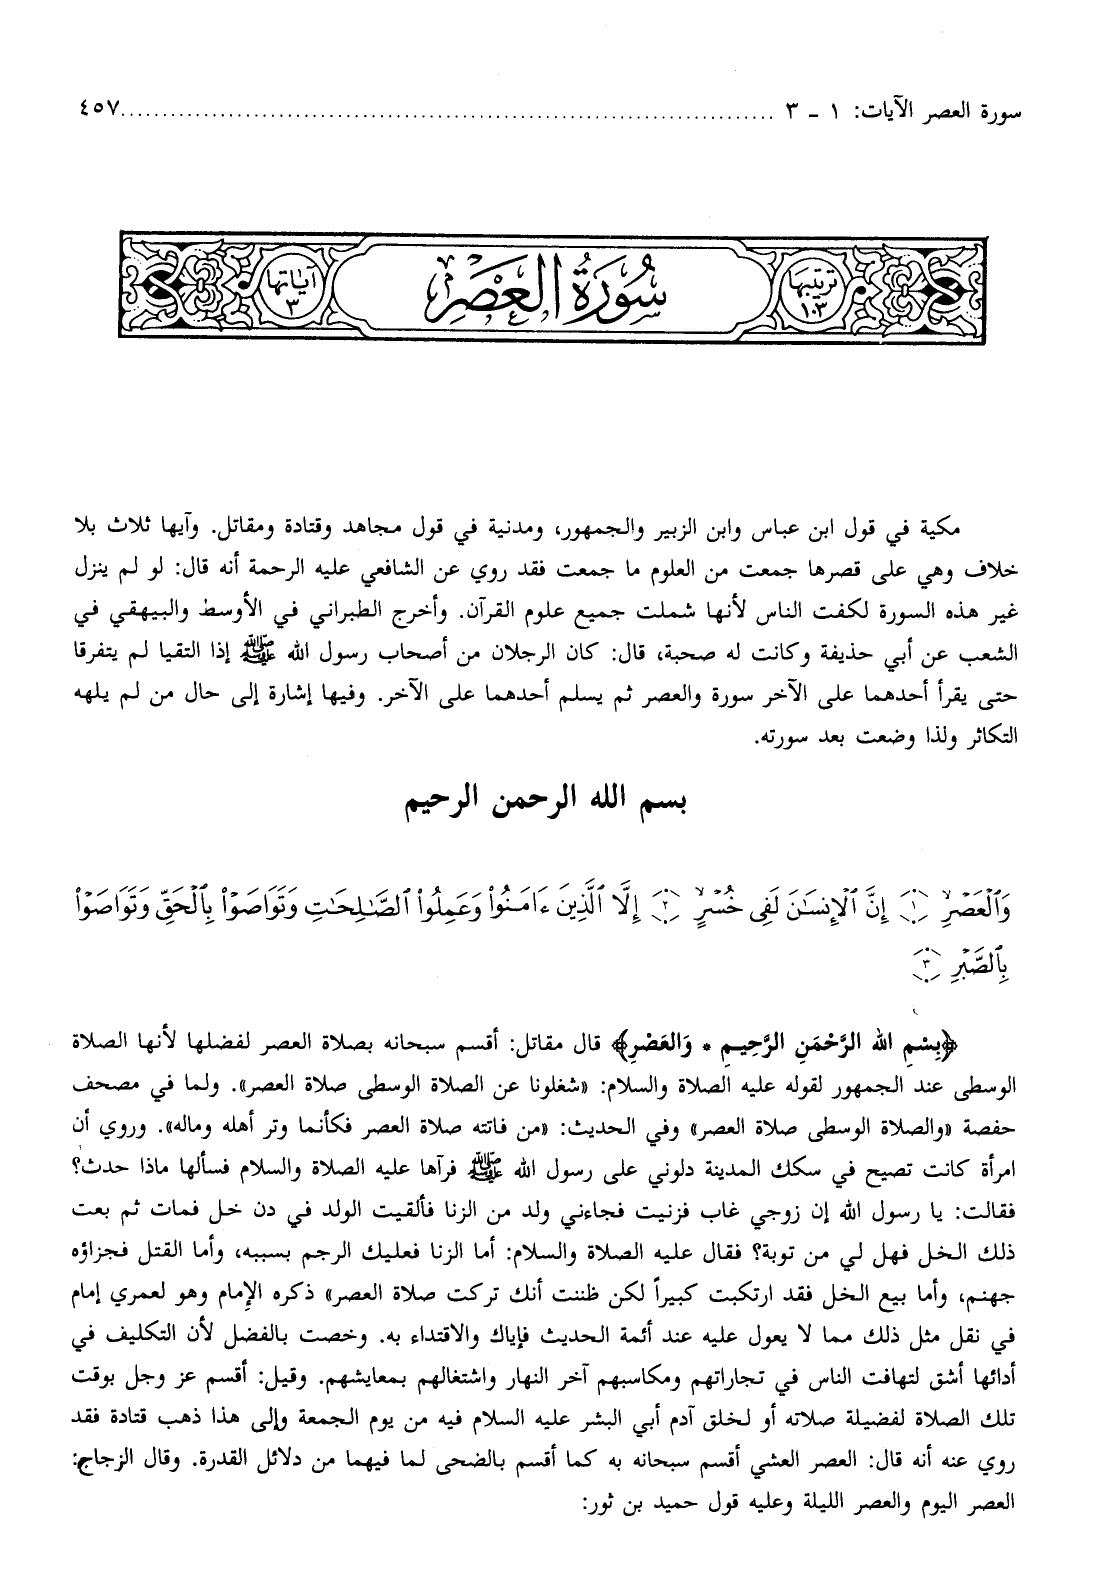 سورة العصر الآيات: ١ ـ ٣ ............................................................................... ٤٥٧
ترتيبها ١٠٣
سُورَةُ العَصْرِ
آياتها ٣
مكية في قول ابن عباس وابن الزبير والجمهور، ومدنية في قول مجاهد وقتادة ومقاتل. وآيها ثلاث بلا
خلاف وهي على قصرها جمعت من العلوم ما جمعت فقد روي عن الشافعي عليه الرحمة أنه قال: لو لم ينزل
غير هذه السورة لكفت الناس لأنها شملت جميع علوم القرآن. وأخرج الطبراني في الأوسط والبيهقي في
الشعب عن أبي حذيفة وكانت له صحبة، قال: كان الرجلان من أصحاب رسول الله ﷺ إذا التقيا لم يتفرقا
حتى يقرأ أحدهما على الآخر سورة والعصر ثم يسلم أحدهما على الآخر. وفيها إشارة إلى حال من لم يلهه
التكاثر ولذا وضعت بعد سورته.
بسم الله الرحمن الرحيم
وَٱلْعَصْرِ ١ إِنَّ ٱلْإِنسَٰنَ لَفِى خُسْرٍ ٢ إِلَّا ٱلَّذِينَ ءَامَنُوا۟ وَعَمِلُوا۟ ٱلصَّٰلِحَٰتِ وَتَوَاصَوْا۟ بِٱلْحَقِّ وَتَوَاصَوْا۟
بِٱلصَّبْرِ ٣
﴿بِسْمِ الله الرَّحْمَنِ الرَّحِيمِ * وَالعَصْرِ﴾ قال مقاتل: أقسم سبحانه بصلاة العصر لفضلها لأنها الصلاة
الوسطى عند الجمهور لقوله عليه الصلاة والسلام: «شغلونا عن الصلاة الوسطى صلاة العصر». ولما في مصحف
حفصة «والصلاة الوسطى صلاة العصر» وفي الحديث: «من فاتته صلاة العصر فكأنما وتر أهله وماله». وروي أن
امرأة كانت تصيح في سكك المدينة دلوني على رسول الله ﷺ فرآها عليه الصلاة والسلام فسألها ماذا حدث؟
فقالت: يا رسول الله إن زوجي غاب فزنيت فجاءني ولد من الزنا فألقيت الولد في دن خل فمات ثم بعت
ذلك الخل فهل لي من توبة؟ فقال عليه الصلاة والسلام: أما الزنا فعليك الرجم بسببه، وأما القتل فجزاؤه
جهنم، وأما بيع الخل فقد ارتكبت كبيراً لكن ظننت أنك تركت صلاة العصر» ذكره الإمام وهو لعمري إمام
في نقل مثل ذلك مما لا يعول عليه عند أئمة الحديث فإياك والاقتداء به. وخصت بالفضل لأن التكليف في
أدائها أشق لتهافت الناس في تجاراتهم ومكاسبهم آخر النهار واشتغالهم بمعايشهم. وقيل: أقسم عز وجل بوقت
تلك الصلاة لفضيلة صلاته أو لخلق آدم أبي البشر عليه السلام فيه من يوم الجمعة وإلى هذا ذهب قتادة فقد
روي عنه أنه قال: العصر العشي أقسم سبحانه به كما أقسم بالضحى لما فيهما من دلائل القدرة. وقال الزجاج:
العصر اليوم والعصر الليلة وعليه قول حميد بن ثور: